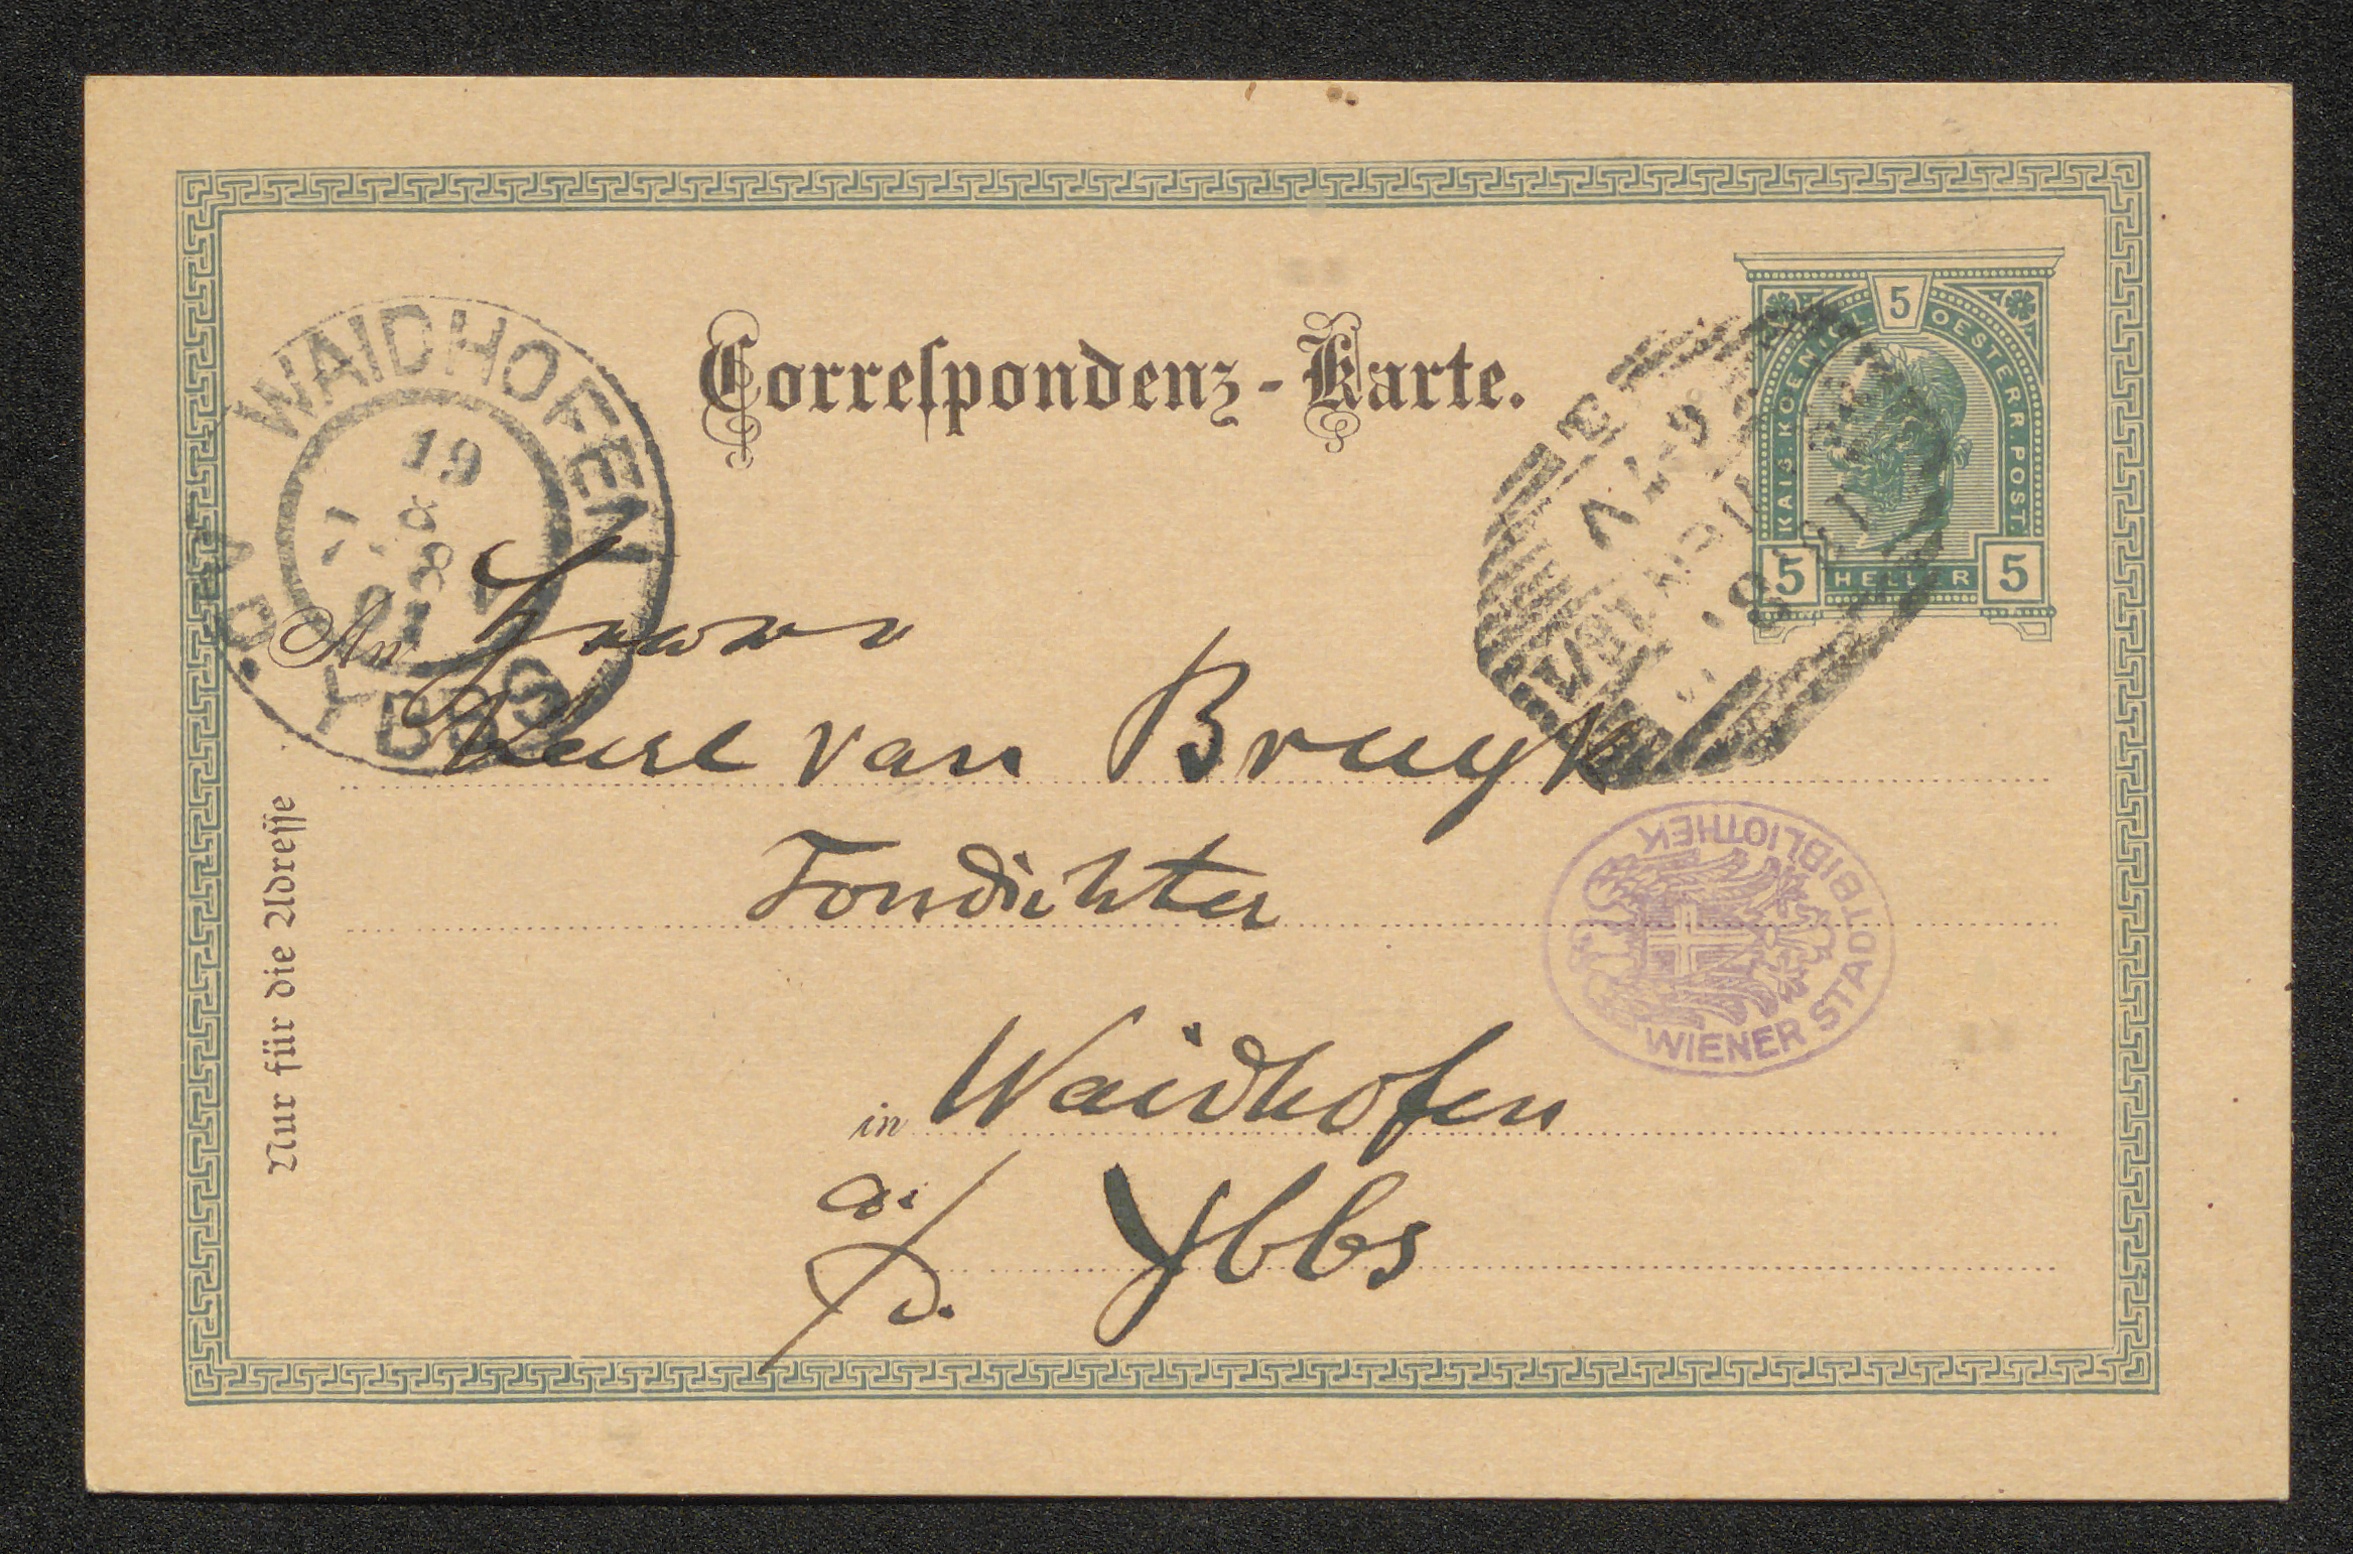 Correspondenz-Karte.
5
KAIS. KOENIGL. OESTERR. POST.
5 HELLER 5
WAIDHOFEN
19
YBBS
An Herrn
Karl van Bruyk
Tondichter
in Waidhofen
a/d. Ybbs
Nur für die Adresse
WIENER STADTBIBLIOTHEK